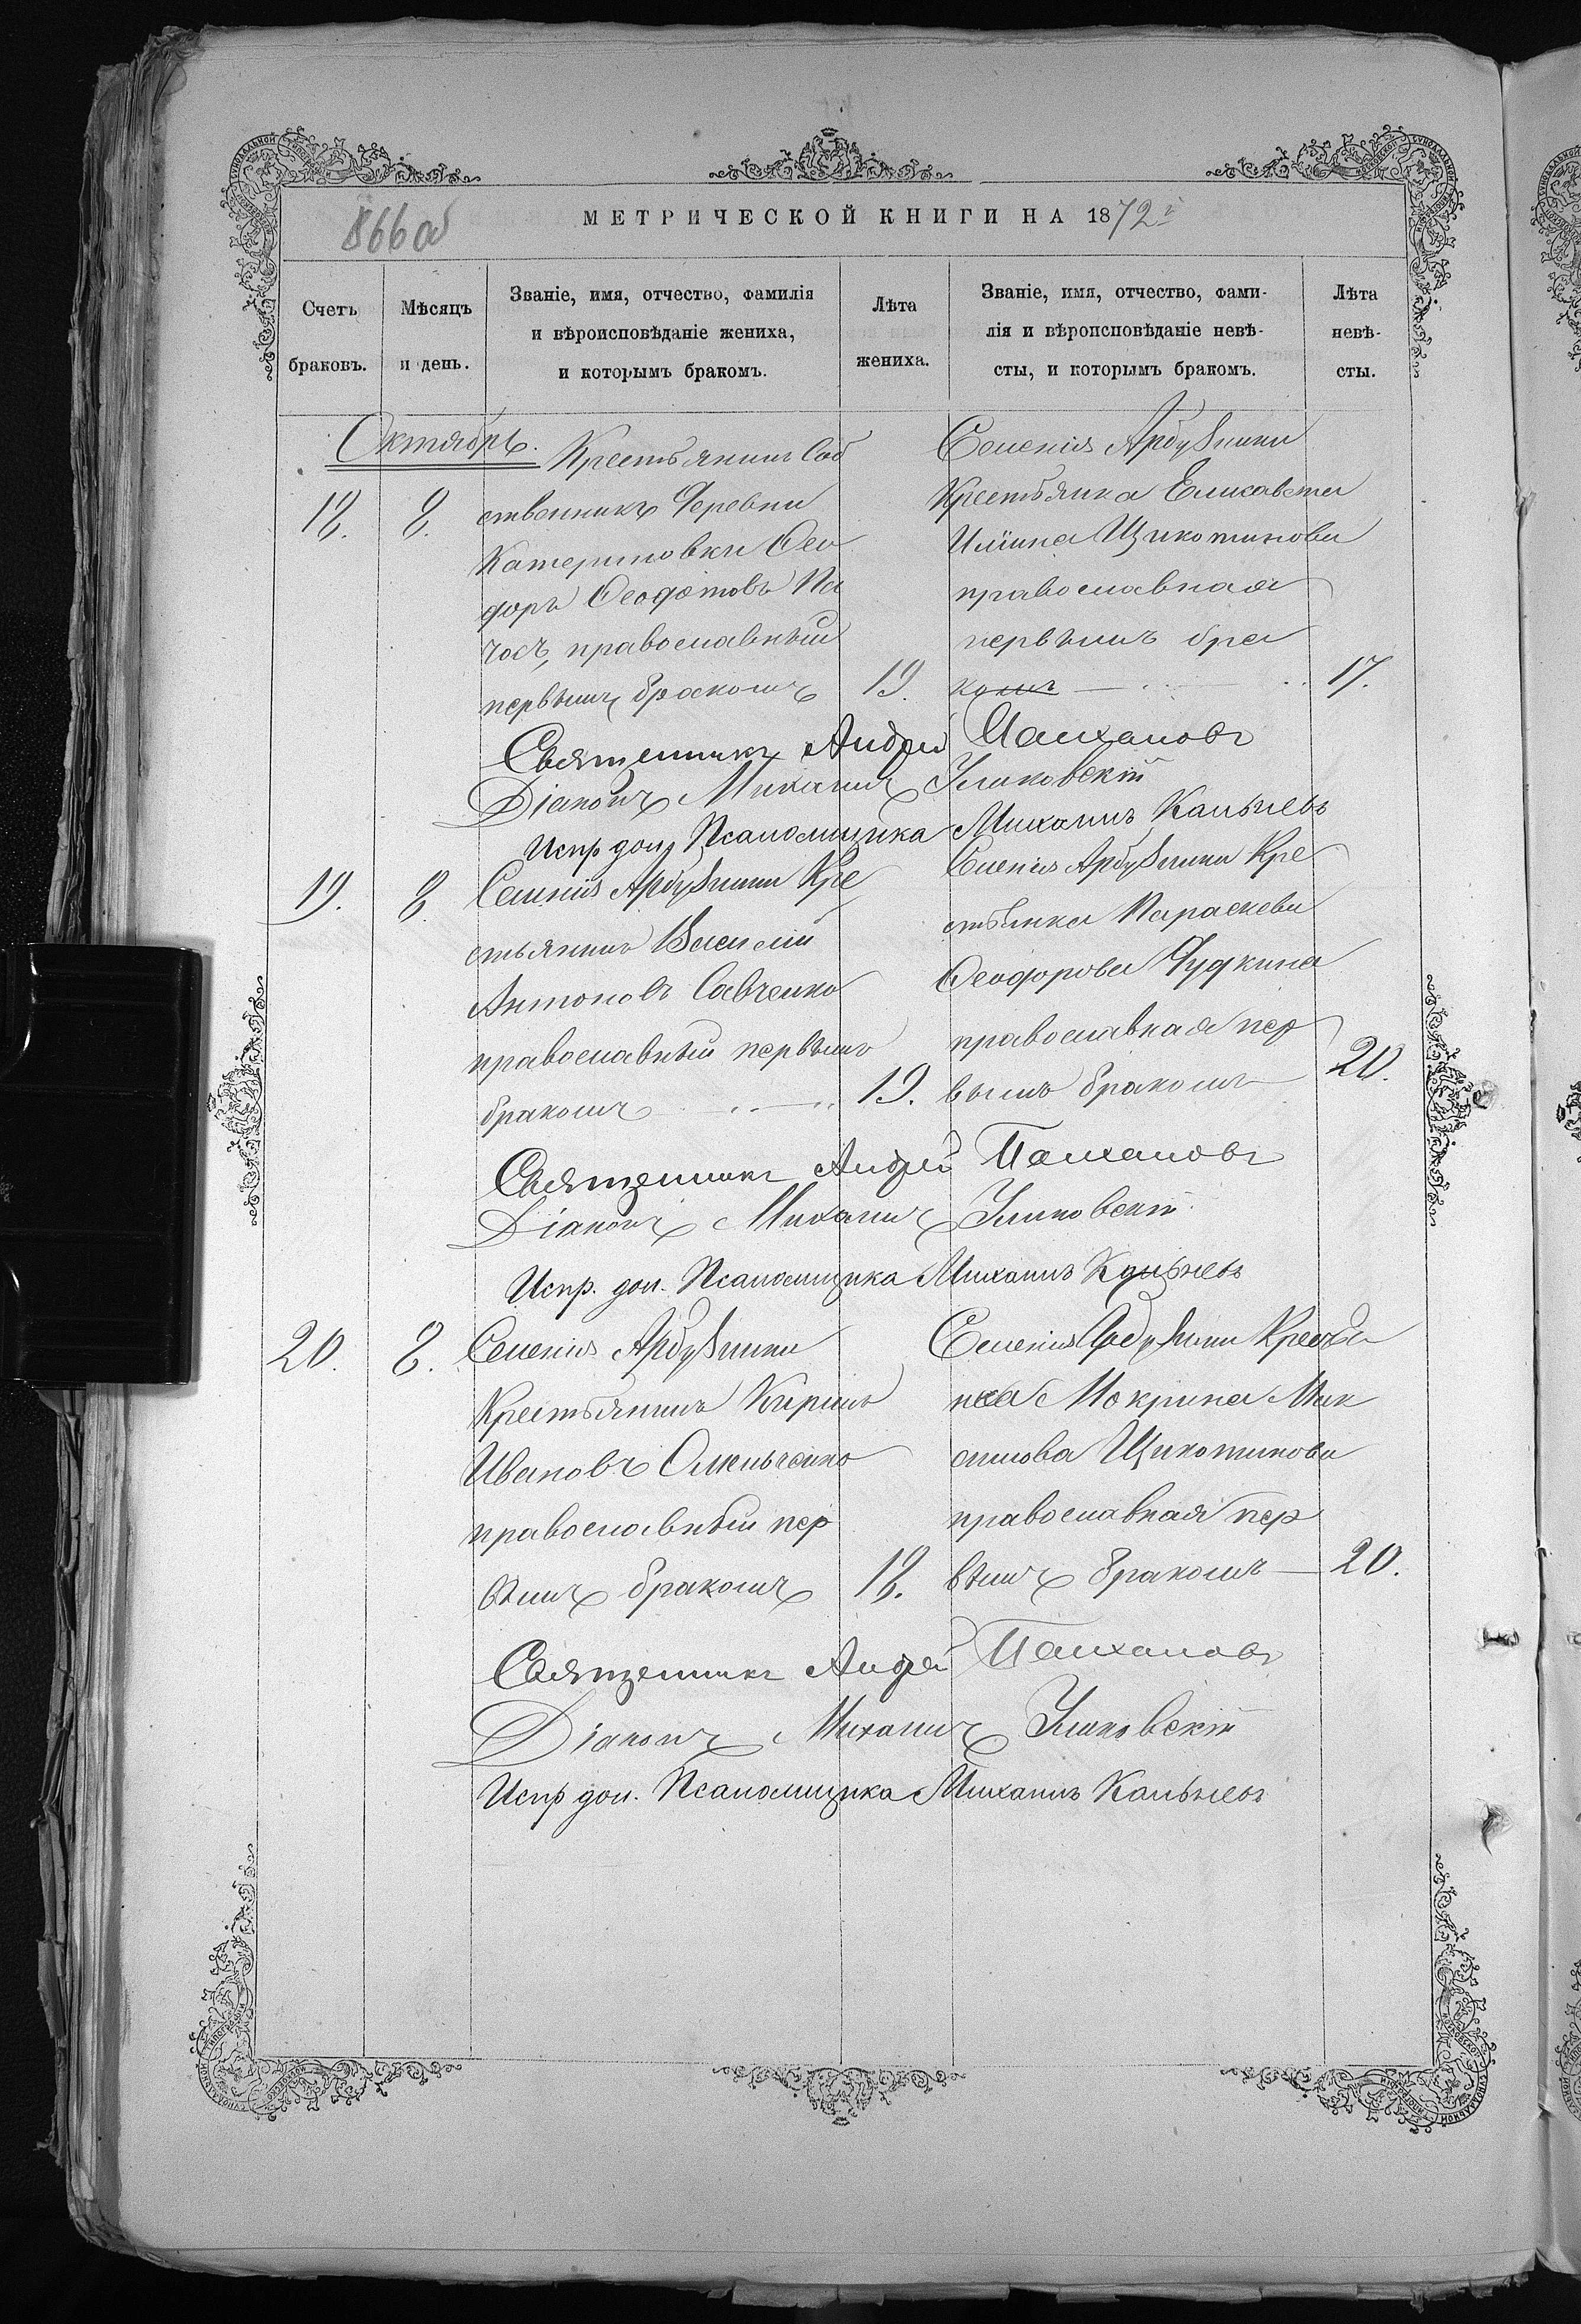 866 об
МЕТРИЧЕСКОЙ КНИГИ НА 1872
Счетъ браковъ.
Мѣсяцъ и день.
Званіе, имя, отчество, фамилія
и вѣроисповѣданіе жениха,
и которымъ бракомъ.
Лѣта жениха.
Званіе, имя, отчество, фами-
лія и вѣроисповѣданіе невѣ-
сты, и которымъ бракомъ.
Лѣта невѣ-
сты.
Октябрь.
18. 8.
Крестьянинъ Соб
ственникъ Деревни
Катериновки Ѳео
доръ Ѳеодотовъ
православный
первымъ бракомъ 19.
Селенія Арбузинки
Крестьянка Елисавета
Ильина Щикотикова
православная
первымъ бра
комъ 17.
Священникъ Андрей
Діаконъ Михаилъ
Испр. дол. Псаломщика Михаилъ
19. 8.
Селенія Арбузинки Кре
стьянинъ Василій
Антоновъ Савченко
православный первымъ
бракомъ 19.
Селенія Арбузинки Кре
стьянка Параскева
Ѳеодорова Дудкина
православная пер
вымъ бракомъ 20.
Священникъ Андрей
Діаконъ Михаилъ
Испр. дол. Псаломщика Михаилъ
20. 8.
Селенія Арбузинки
Крестьянинъ Кирилъ
Ивановъ Омельченко
православный пер
вымъ бракомъ 18.
Селенія Арбузинки Крестья
нка Мокрина Мак
симова Щикотикова
православная пер
вымъ бракомъ 20.
Священникъ Андрей
Діаконъ Михаилъ
Испр. дол. Псаломщика Михаилъ